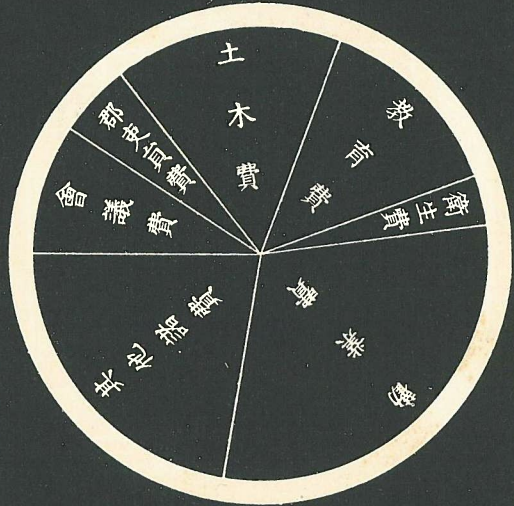 土木費
教育費
衛生費
勸業費
其他諸費
會議費
郡吏員費